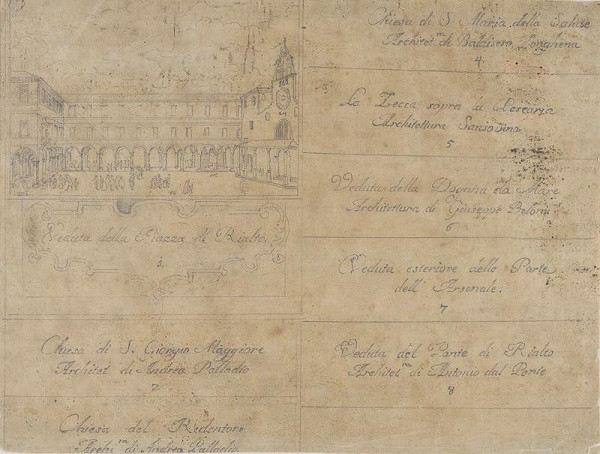 Veduta della Piazza di Rialto.
3.
Chiesa di S. Giorgio Maggiore
Architet di Andrea Palladio
2
Chiesa del Redentore
di Andrea Palladio.
Chiesa di S. Maria della Salute
di Longhena
4
La Zecca sopra la Pescaria
Architettura Sansovina
5
Veduta della da Mare
Architettura di Giuseppe
6
Veduta esteriore delle Porte
dell' Arsenale.
7
Veduta del Ponte di Rialto
di Antonio dal Ponte
8